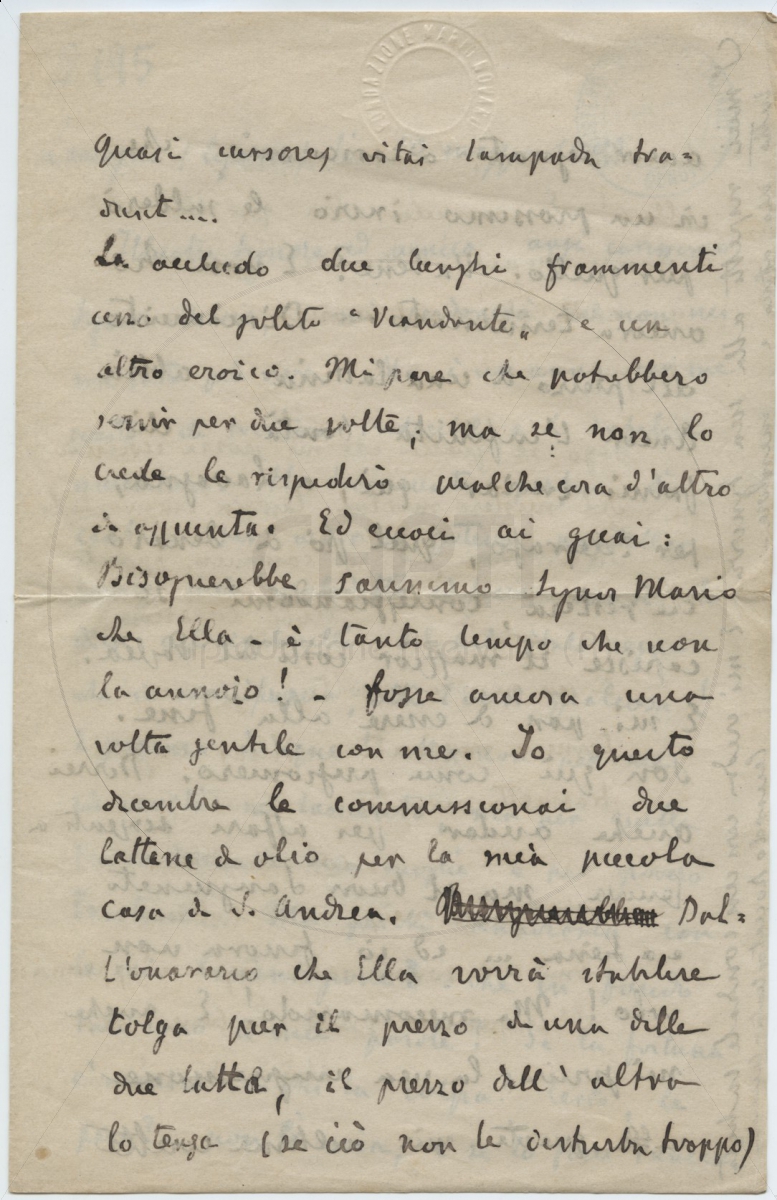 FONDAZIONE MARIO NOVARO
Quasi cursores vitai lampada tra=
dunt....
Le accludo due lunghi frammenti
uno del solito "Viandante" e un
altro eroico. Mi pare che potrebbero
servir per due volte; ma se non lo
crede le rispedirò qualche cosa d'altro
Ed eccoci ai guai:
Bisognerebbe Signor Mario
che Ella - è tanto tempo che non
la annoio! - fosse ancora una
volta gentile con me. Io questo
dicembre le commissionai due
lattine di olio per la mia piccola
casa di S. Andrea. Dal=
l'onorario che Ella vorrà stabilire
tolga pur il prezzo di una delle
due latte, il prezzo dell'altra
lo tenga (se ciò non le disturba troppo)